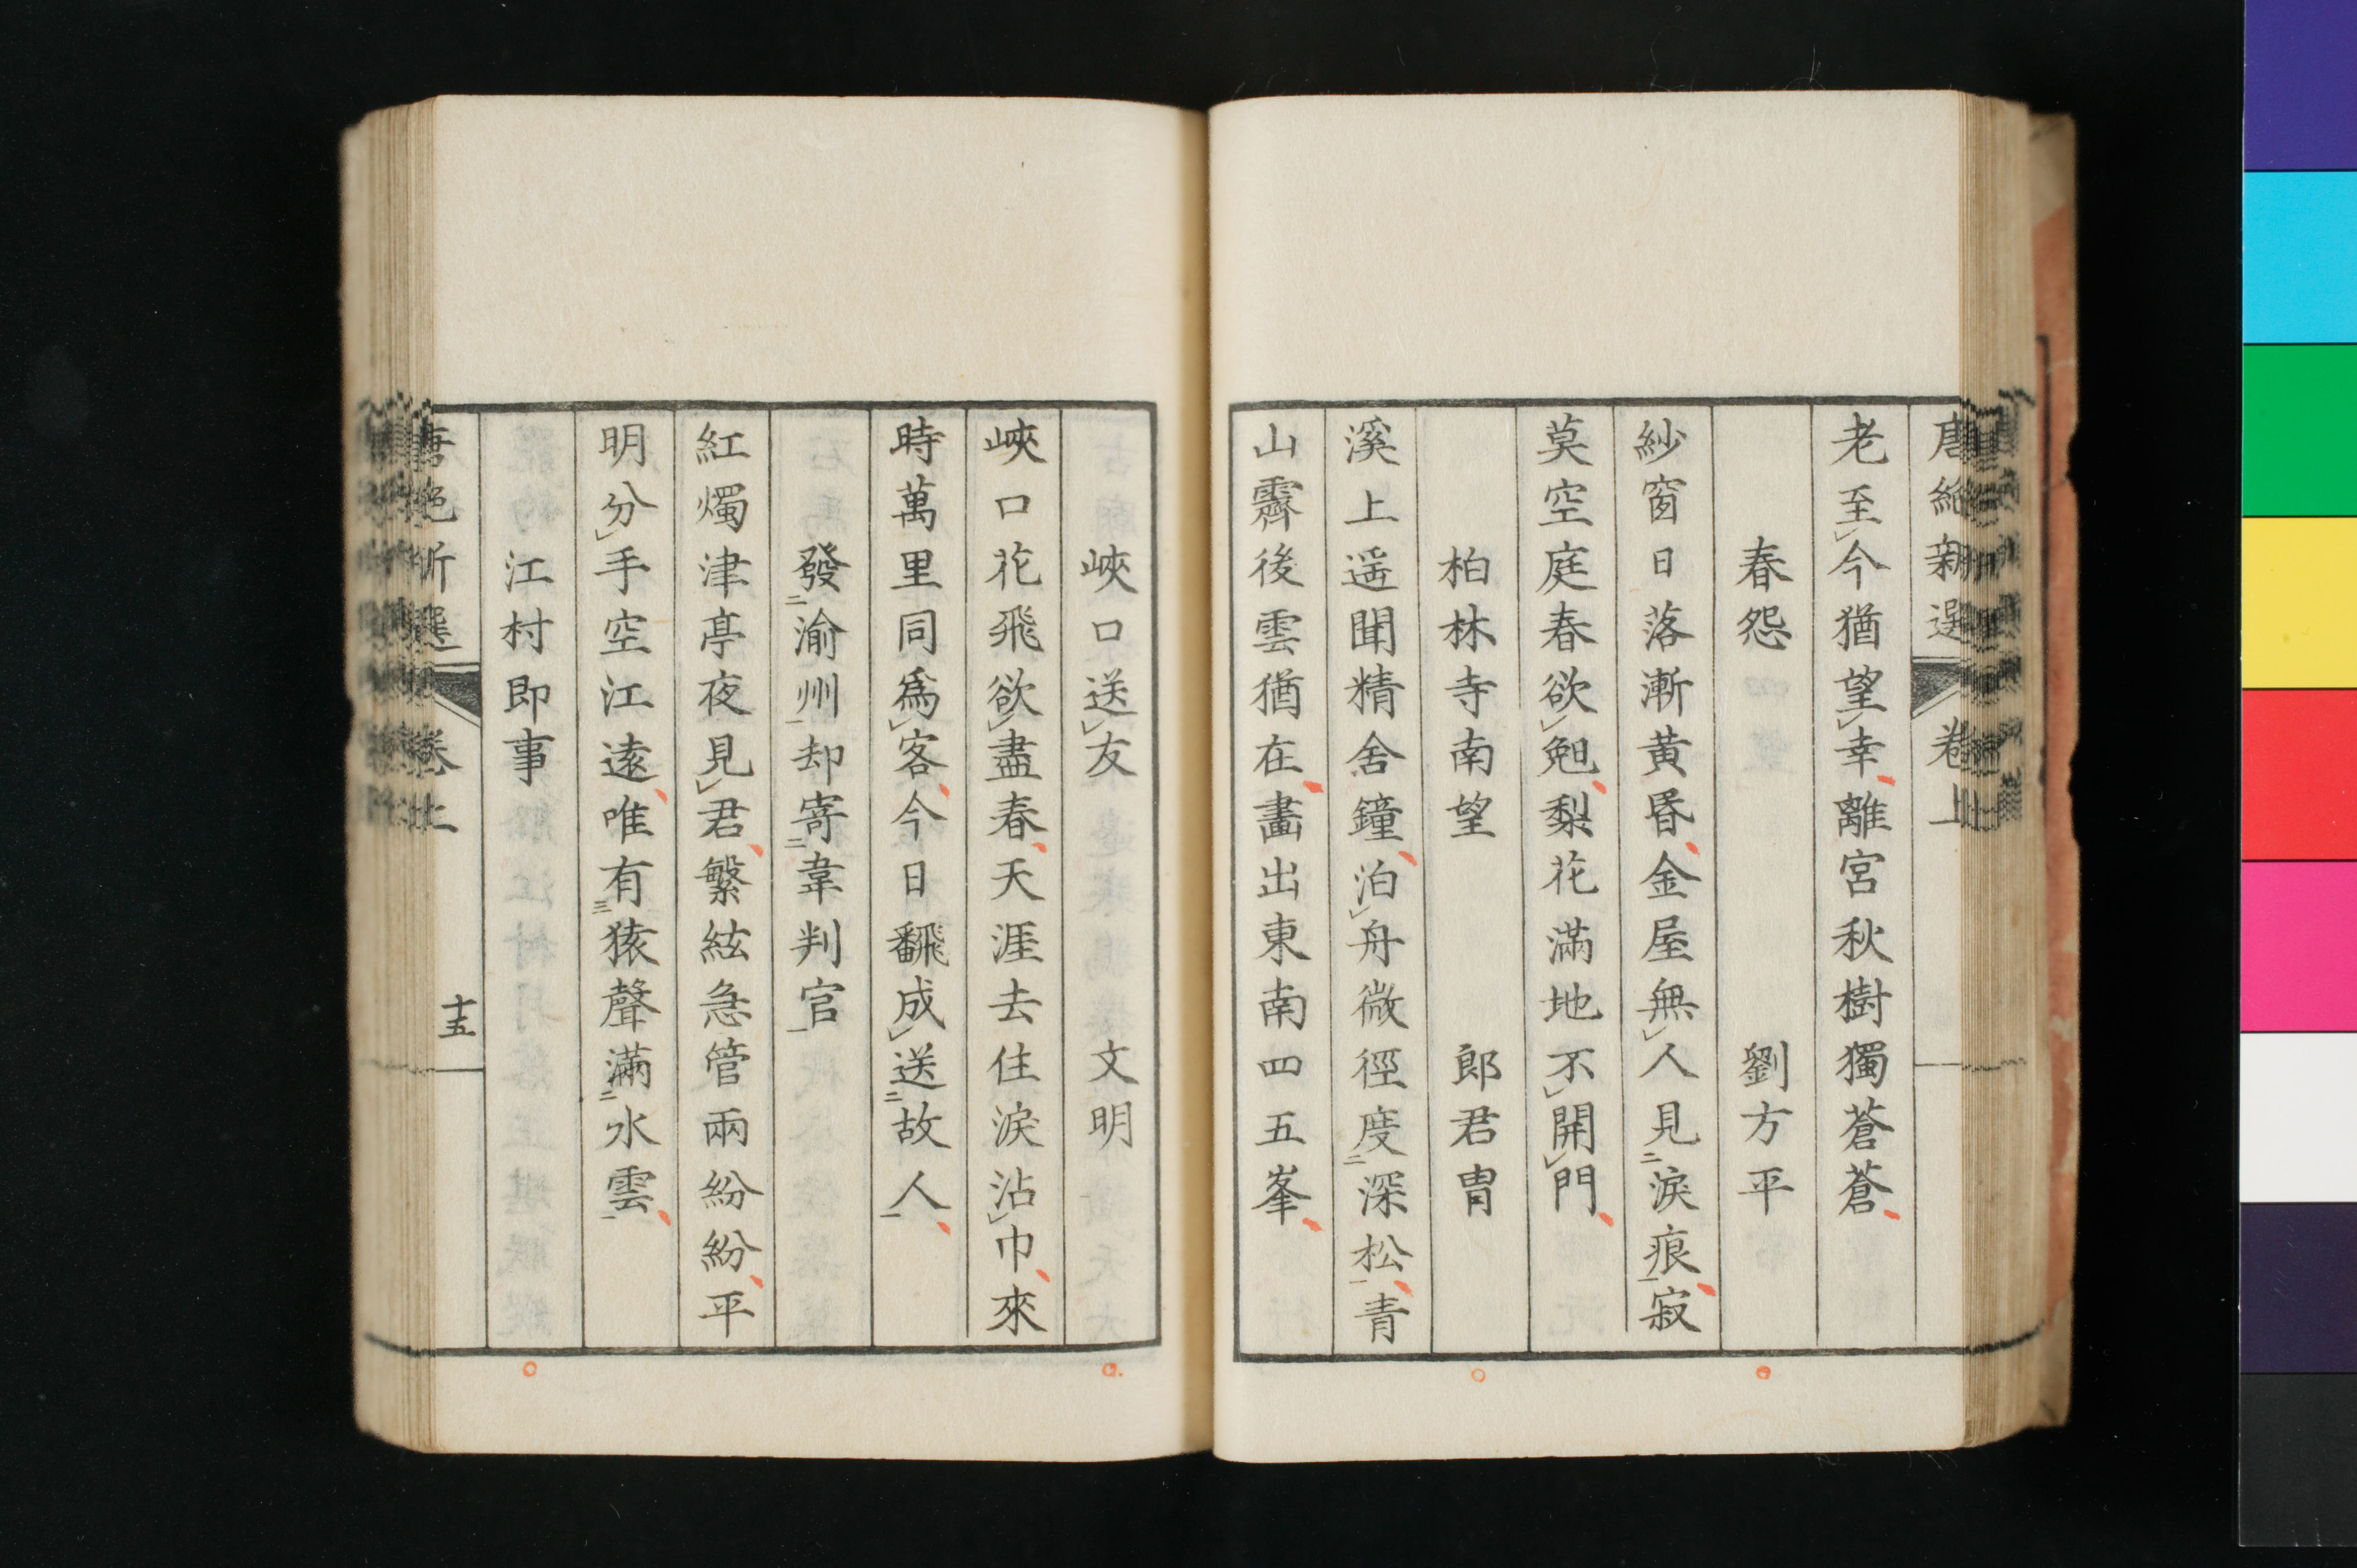 唐絶新選 卷上
老至今猶望幸離宮秋樹獨蒼蒼
春怨 劉方平
紗窗日落漸黄昏金屋無人見二淚痕一寂
莫空庭春欲晩梨花滿地不開門
柏林寺南望 郎君冑
溪上遥聞精舍鐘泊舟微徑度二深松一青
山霽後雲猶在畵出東南四五峯
峽口送友 文明
峽口花飛欲盡春天涯去住淚沾巾來
時萬里同爲客今日飜成送二故人一
發二渝州一却寄二韋判官一
紅燭津亭夜見君繁絃急管兩紛紛平
明分手空江遠唯有三猿聲滿二水雲一
江村即事
唐絶新選 卷上 十五